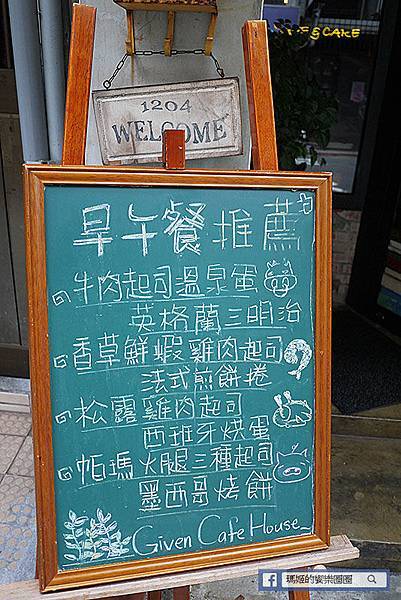 &CAKE
1204
WELCOME
早午餐推薦
牛肉起司溫泉蛋
英格蘭三明治
香草鮮蝦雞肉起司
法式煎餅捲
松露雞肉起司
西班牙烘蛋
帕瑪火腿三種起司
墨西哥烤餅
Given Cafe House
瑪姬的饗樂圈圈